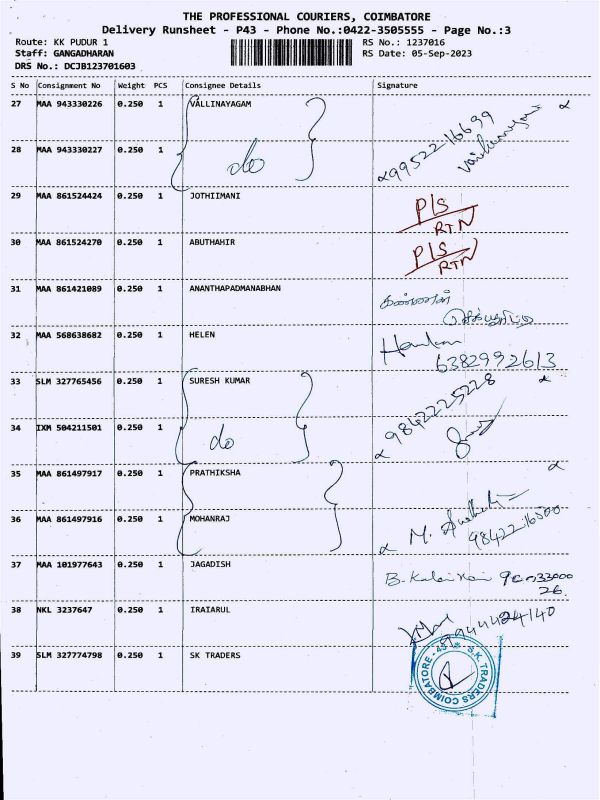 THE PROFESSIONAL COURIERS, COIMBATORE
Delivery Runsheet - P43 - Phone No.:0422-3505555 - Page No.:3
Route: KK PUDUR 1 RS No.: 1237016
Staff: GANGADHARAN RS Date: 05-Sep-2023
DRS No.: DCJB123701603
S No Consignment No Weight PCS Consignee Details Signature
27 MAA 943330226 0.250 1 VALLINAYAGAM
28 MAA 943330227 0.250 1 do 9952216699
29 MAA 861524424 0.250 1 JOTHIIMANI P/S RTN
30 MAA 861524270 0.250 1 ABUTHAHIR P/S RTN
31 MAA 861421089 0.250 1 ANANTHAPADMANABHAN
32 MAA 568638682 0.250 1 HELEN 6382992613
33 SLM 327765456 0.250 1 SURESH KUMAR 9842225228
34 IXM 504211501 0.250 1 do
35 MAA 861497917 0.250 1 PRATHIKSHA
36 MAA 861497916 0.250 1 MOHANRAJ M. 9842216500
37 MAA 101977643 0.250 1 JAGADISH B.
38 NKL 3237647 0.250 1 IRAIARUL 9944424140
39 SLM 327774798 0.250 1 SK TRADERS
S.K. TRADERS COIMBATORE - 43